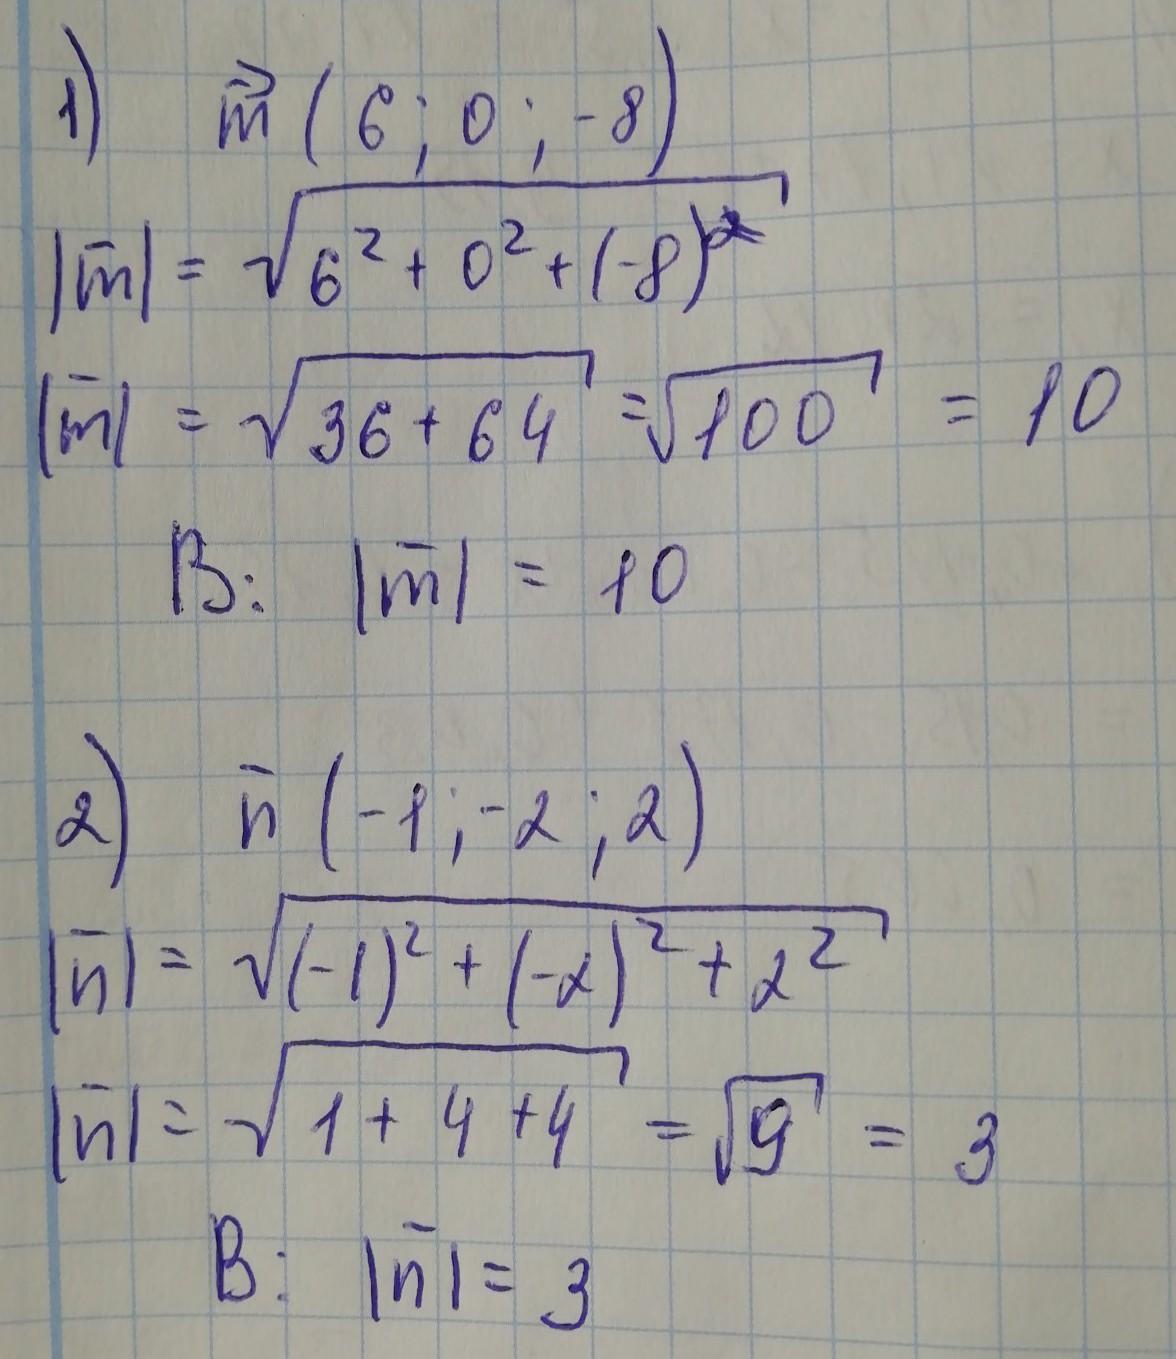 1) m⃗ (6; 0; -8)
|m̄| = √(6² + 0² + (-8)²)
|m̄| = √(36 + 64) = √100 = 10
В: |m̄| = 10
2) n̄ (-1; -2; 2)
|n̄| = √((-1)² + (-2)² + 2²)
|n̄| = √(1 + 4 + 4) = √9 = 3
В: |n̄| = 3